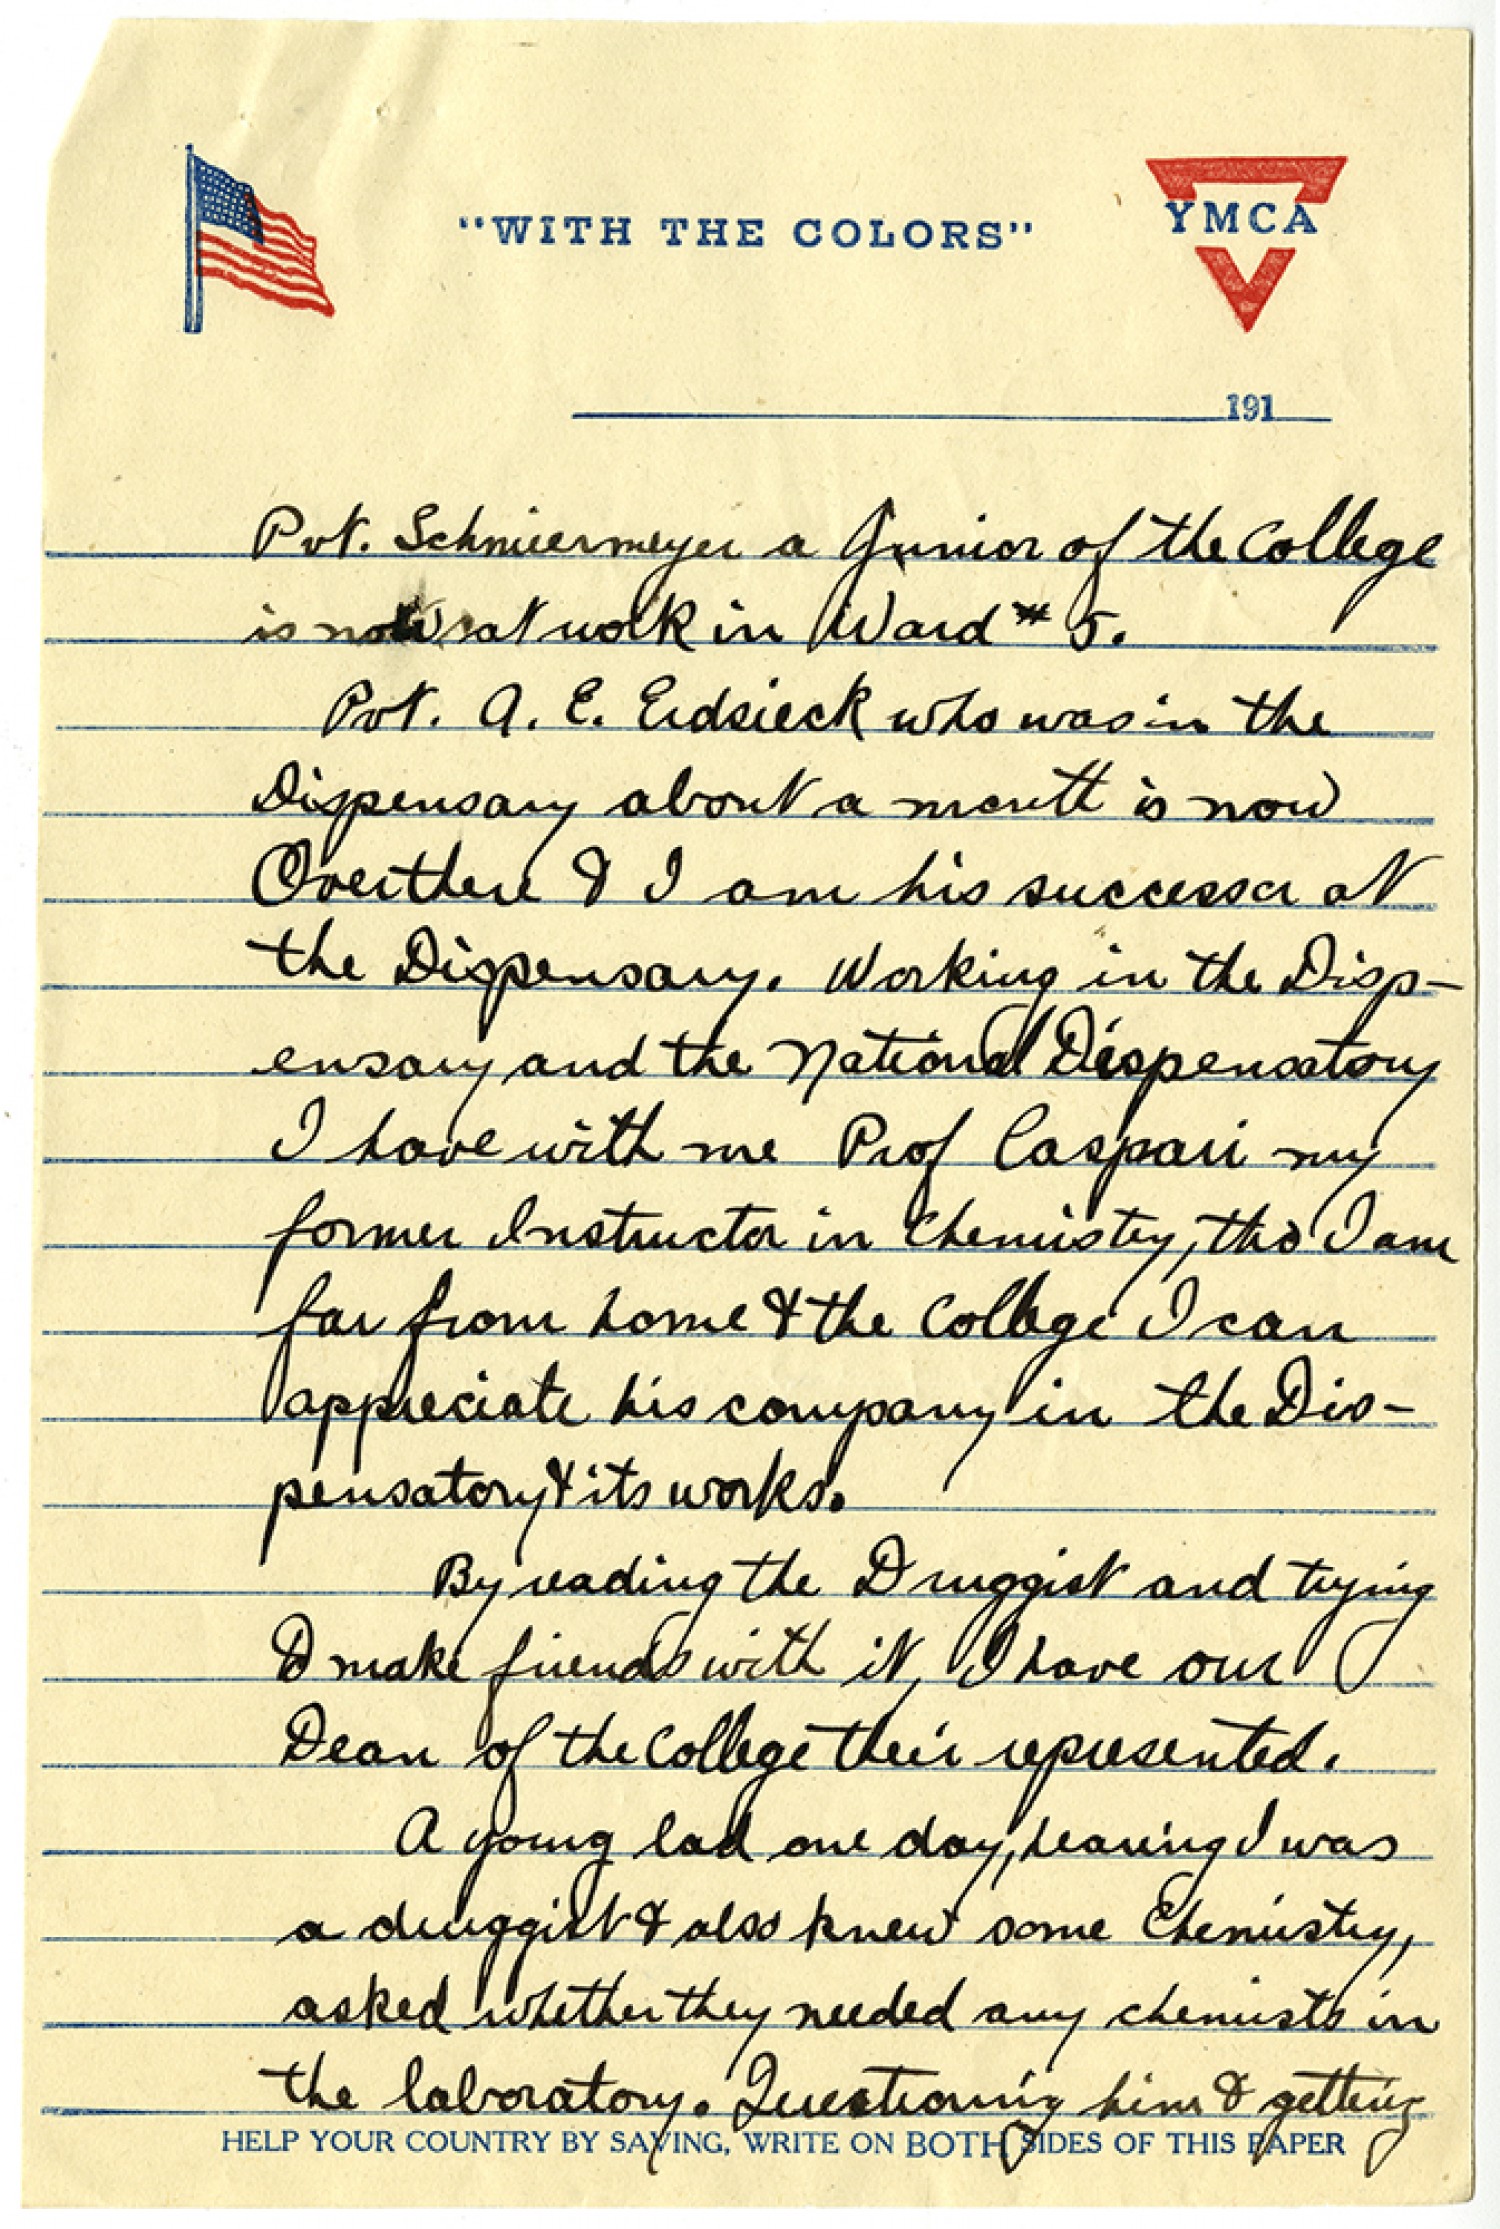 "WITH THE COLORS"
YMCA
191
Pvt. Schmiermeyer a Junior of the College
is now at work in Ward # 5.
Pvt. A. E. Erdsieck who was in the
Dispensary about a month is now
Overthere & I am his successor at
the Dispensary. Working in the Disp-
ensary and the National Dispensatory
I have with me Prof Caspari my
former Instructor in Chemistry, tho I am
far from home & the College I can
appreciate his company in the Dis-
pensatory & its works.
By reading the Druggist and trying
to make friends with it, I have our
Dean of the College their represented.
A young lad one day, hearing I was
a druggist & also knew some Chemistry,
asked whether they needed any chemists in
the laboratory. Questioning him & getting
HELP YOUR COUNTRY BY SAVING, WRITE ON BOTH SIDES OF THIS PAPER